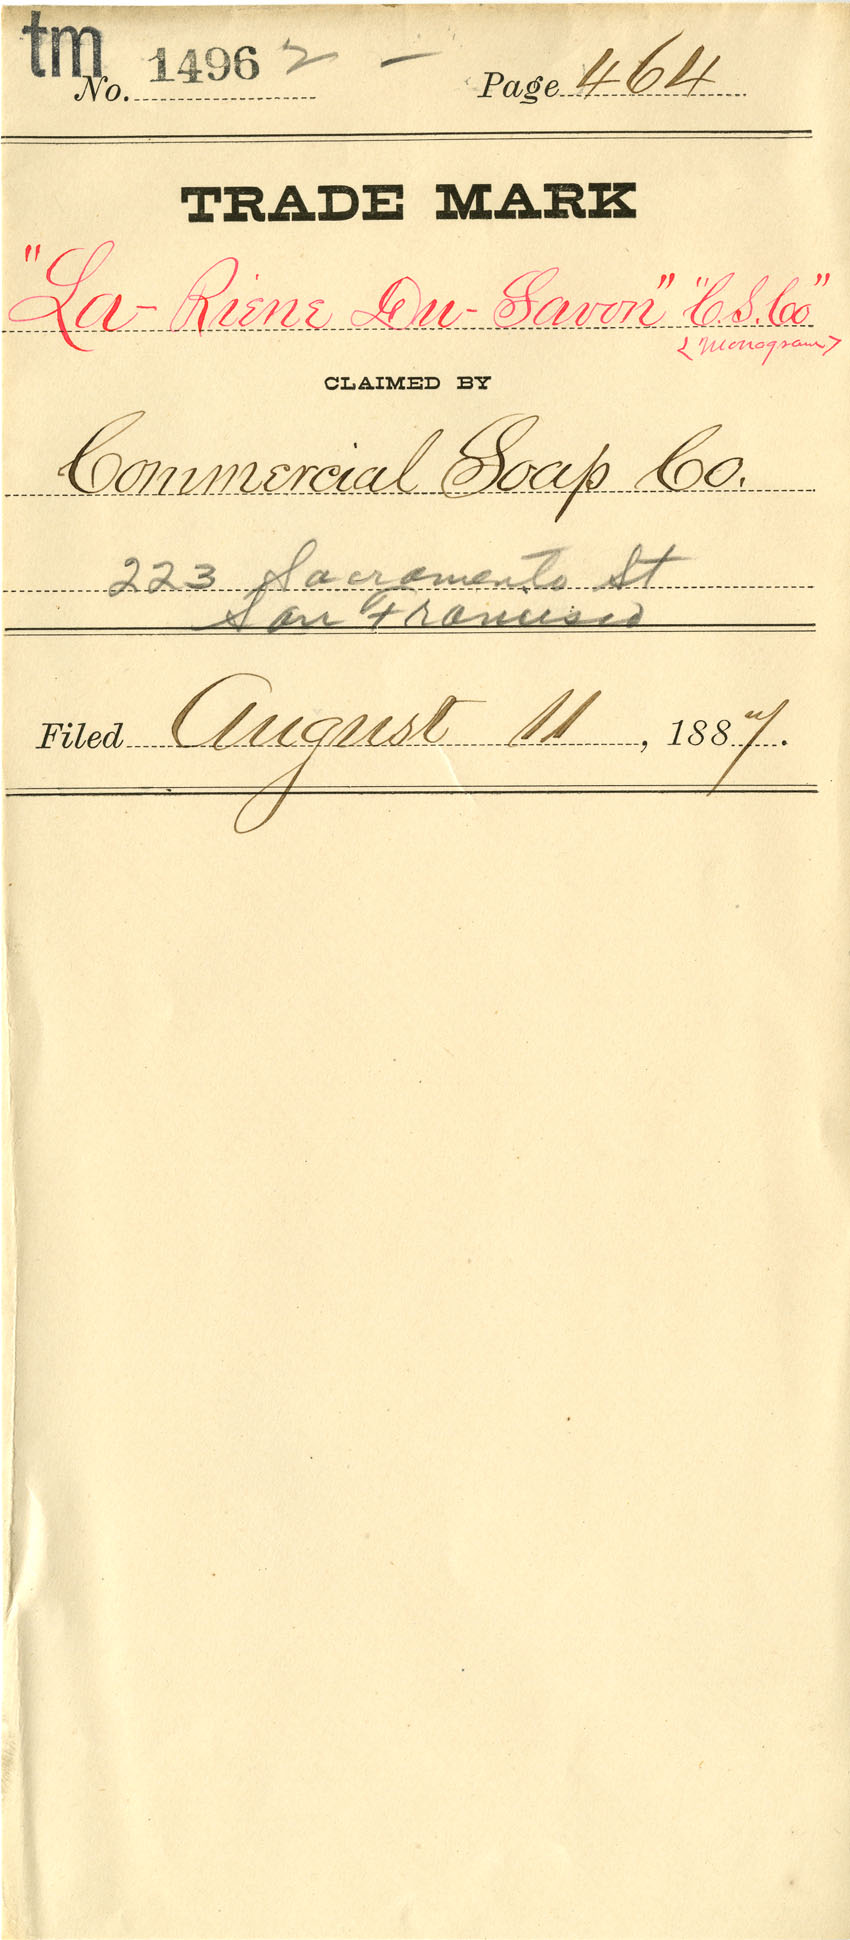 tm
No. 1496 2 - Page 464
TRADE MARK
"La-Riene Du-Savon" "C.S.Co"
(Monogram)
CLAIMED BY
Commercial Soap Co.
223 Sacramento St
San Francisco
Filed August 11, 1887.